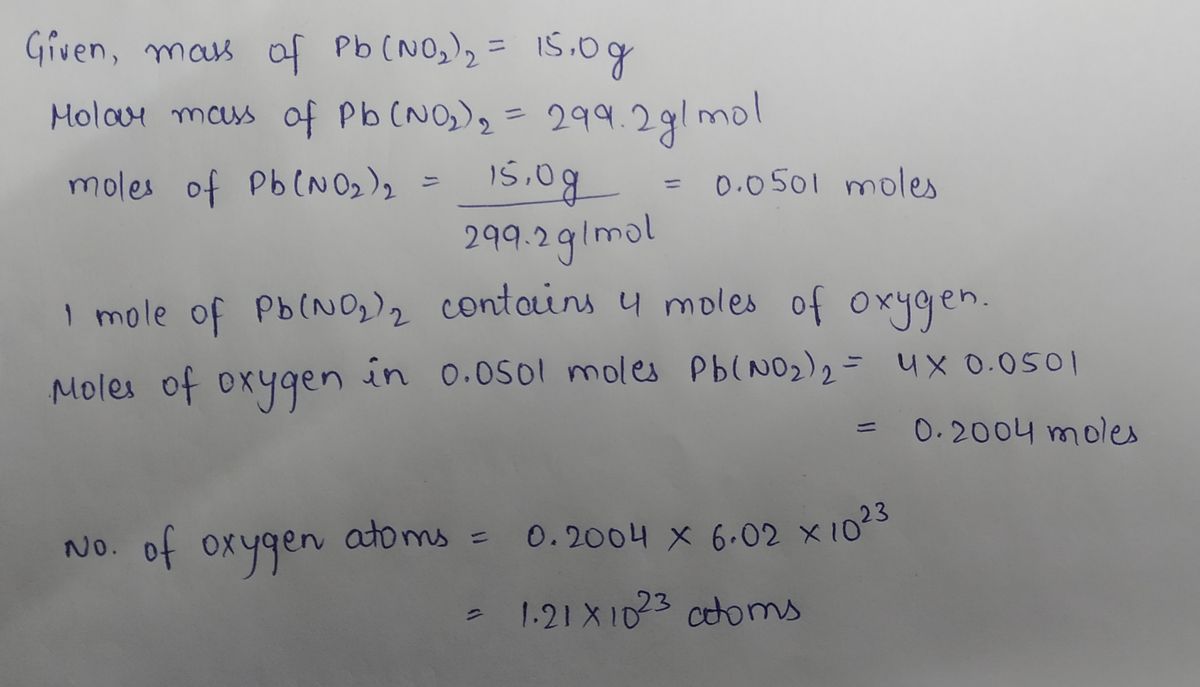 Given, mass of Pb(NO₂)₂ = 15.0g
Molar mass of Pb(NO₂)₂ = 299.2g/mol
moles of Pb(NO₂)₂ = 15.0g / 299.2g/mol = 0.0501 moles
1 mole of Pb(NO₂)₂ contains 4 moles of oxygen.
Moles of oxygen in 0.0501 moles Pb(NO₂)₂ = 4 × 0.0501
= 0.2004 moles
No. of oxygen atoms = 0.2004 × 6.02 × 10²³
= 1.21 × 10²³ atoms